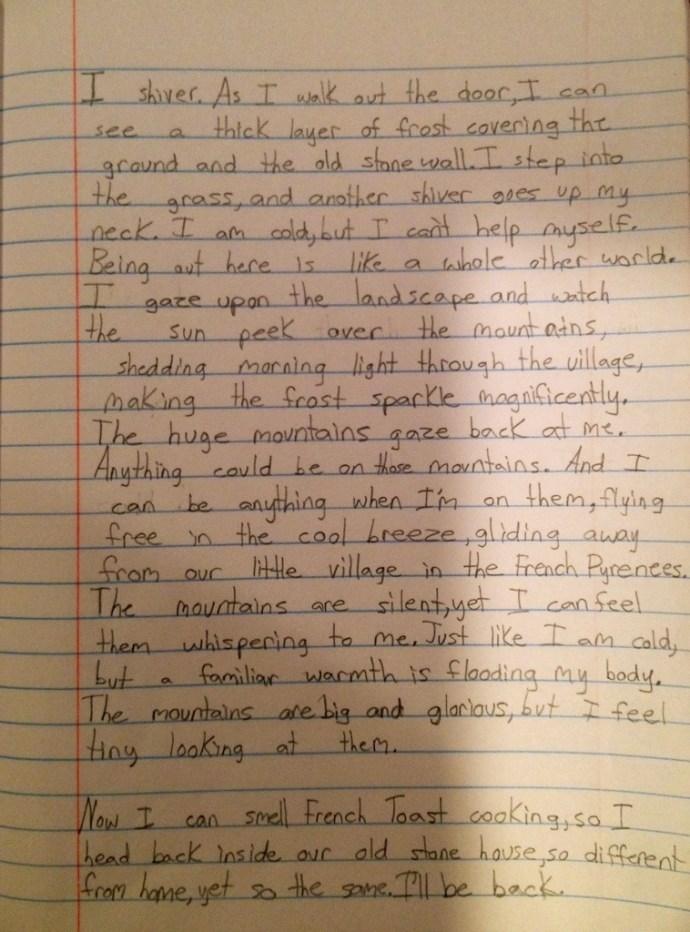 I shiver. As I walk out the door, I can
see a thick layer of frost covering the
ground and the old stone wall. I step into
the grass, and another shiver goes up my
neck. I am cold, but I can't help myself.
Being out here is like a whole other world.
I gaze upon the landscape and watch
the sun peek over the mountains,
shedding morning light through the village,
making the frost sparkle magnificently.
The huge mountains gaze back at me.
Anything could be on those mountains. And I
can be anything when I'm on them, flying
free in the cool breeze, gliding away
from our little village in the French Pyrenees.
The mountains are silent, yet I can feel
them whispering to me. Just like I am cold,
but a familiar warmth is flooding my body.
The mountains are big and glorious, but I feel
tiny looking at them.
Now I can smell French Toast cooking, so I
head back inside our old stone house, so different
from home, yet so the same. I'll be back.